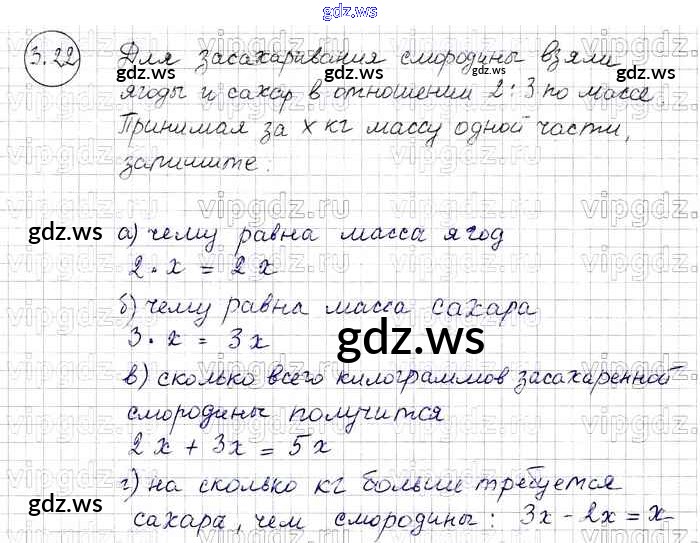 gdz.ws
3.22 Для засахаривания смородины взяли
ягоды и сахар в отношении 2:3 по массе.
Принимая за x кг массу одной части,
запишите:
а) чему равна масса ягод
2 · x = 2x
б) чему равна масса сахара
3 · x = 3x
в) сколько всего килограммов засахаренной
смородины получится
2x + 3x = 5x
г) на сколько кг больше требуется
сахара, чем смородины: 3x - 2x = x